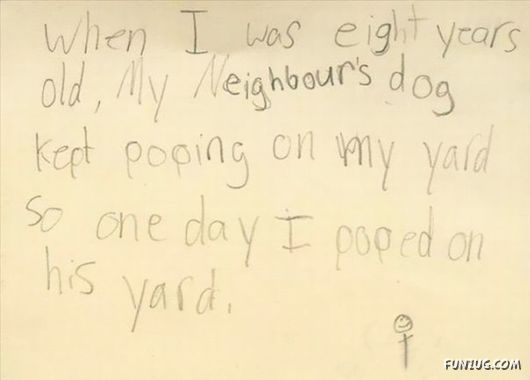 When I was eight years
old, My Neighbour's dog
kept poping on my yard
So one day I poped on
his yard.
FUNZUG.COM